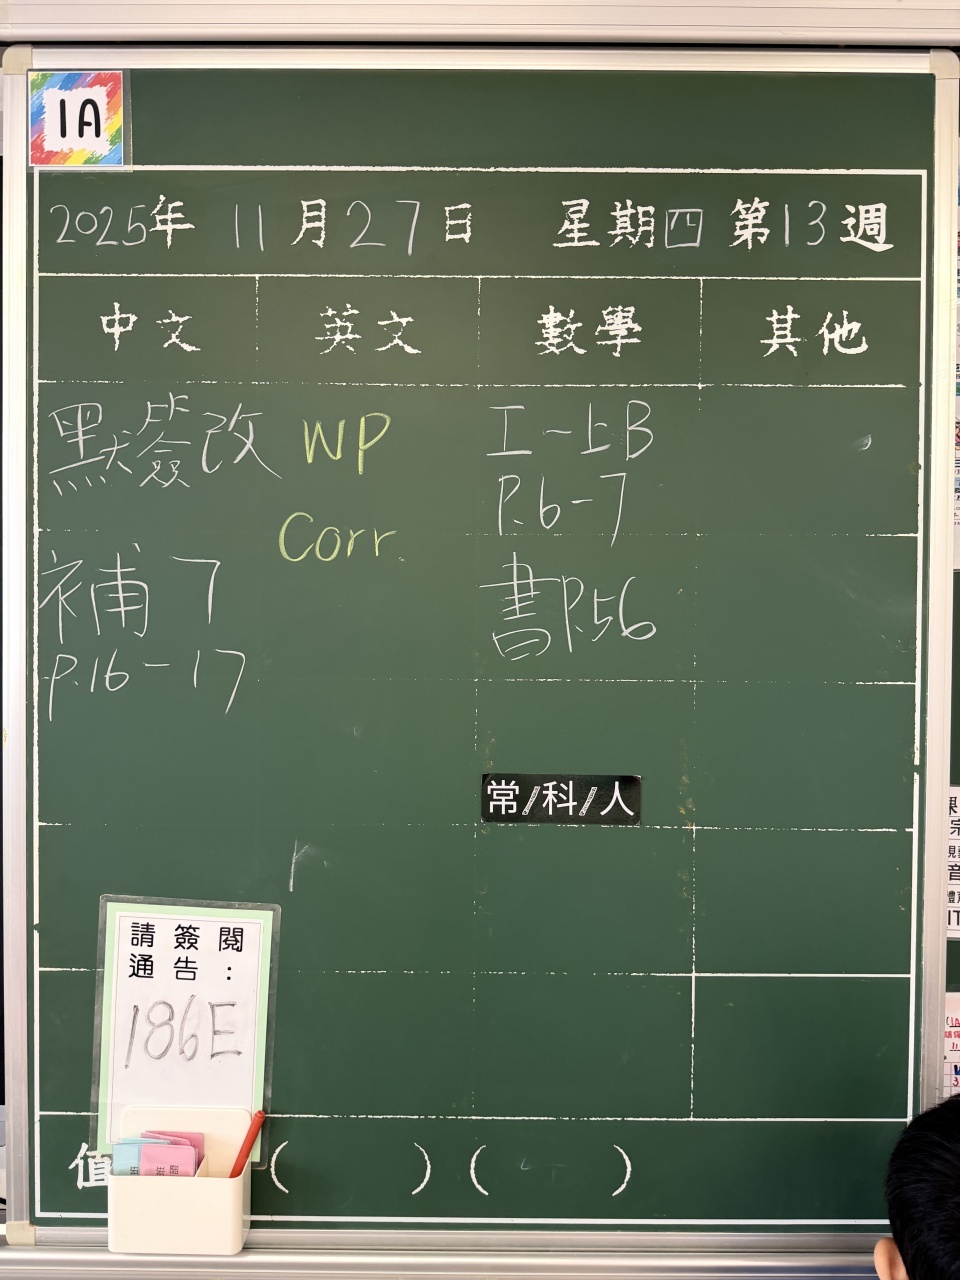 1A
2025年 11月27日 星期四 第13週
中文 英文 數學 其他
默簽改
補7
P.16-17
WP
Corr.
工一上B
P.6-7
書P.56
常/科/人
請簽閱
通告:
186E
值 ( ) ( )